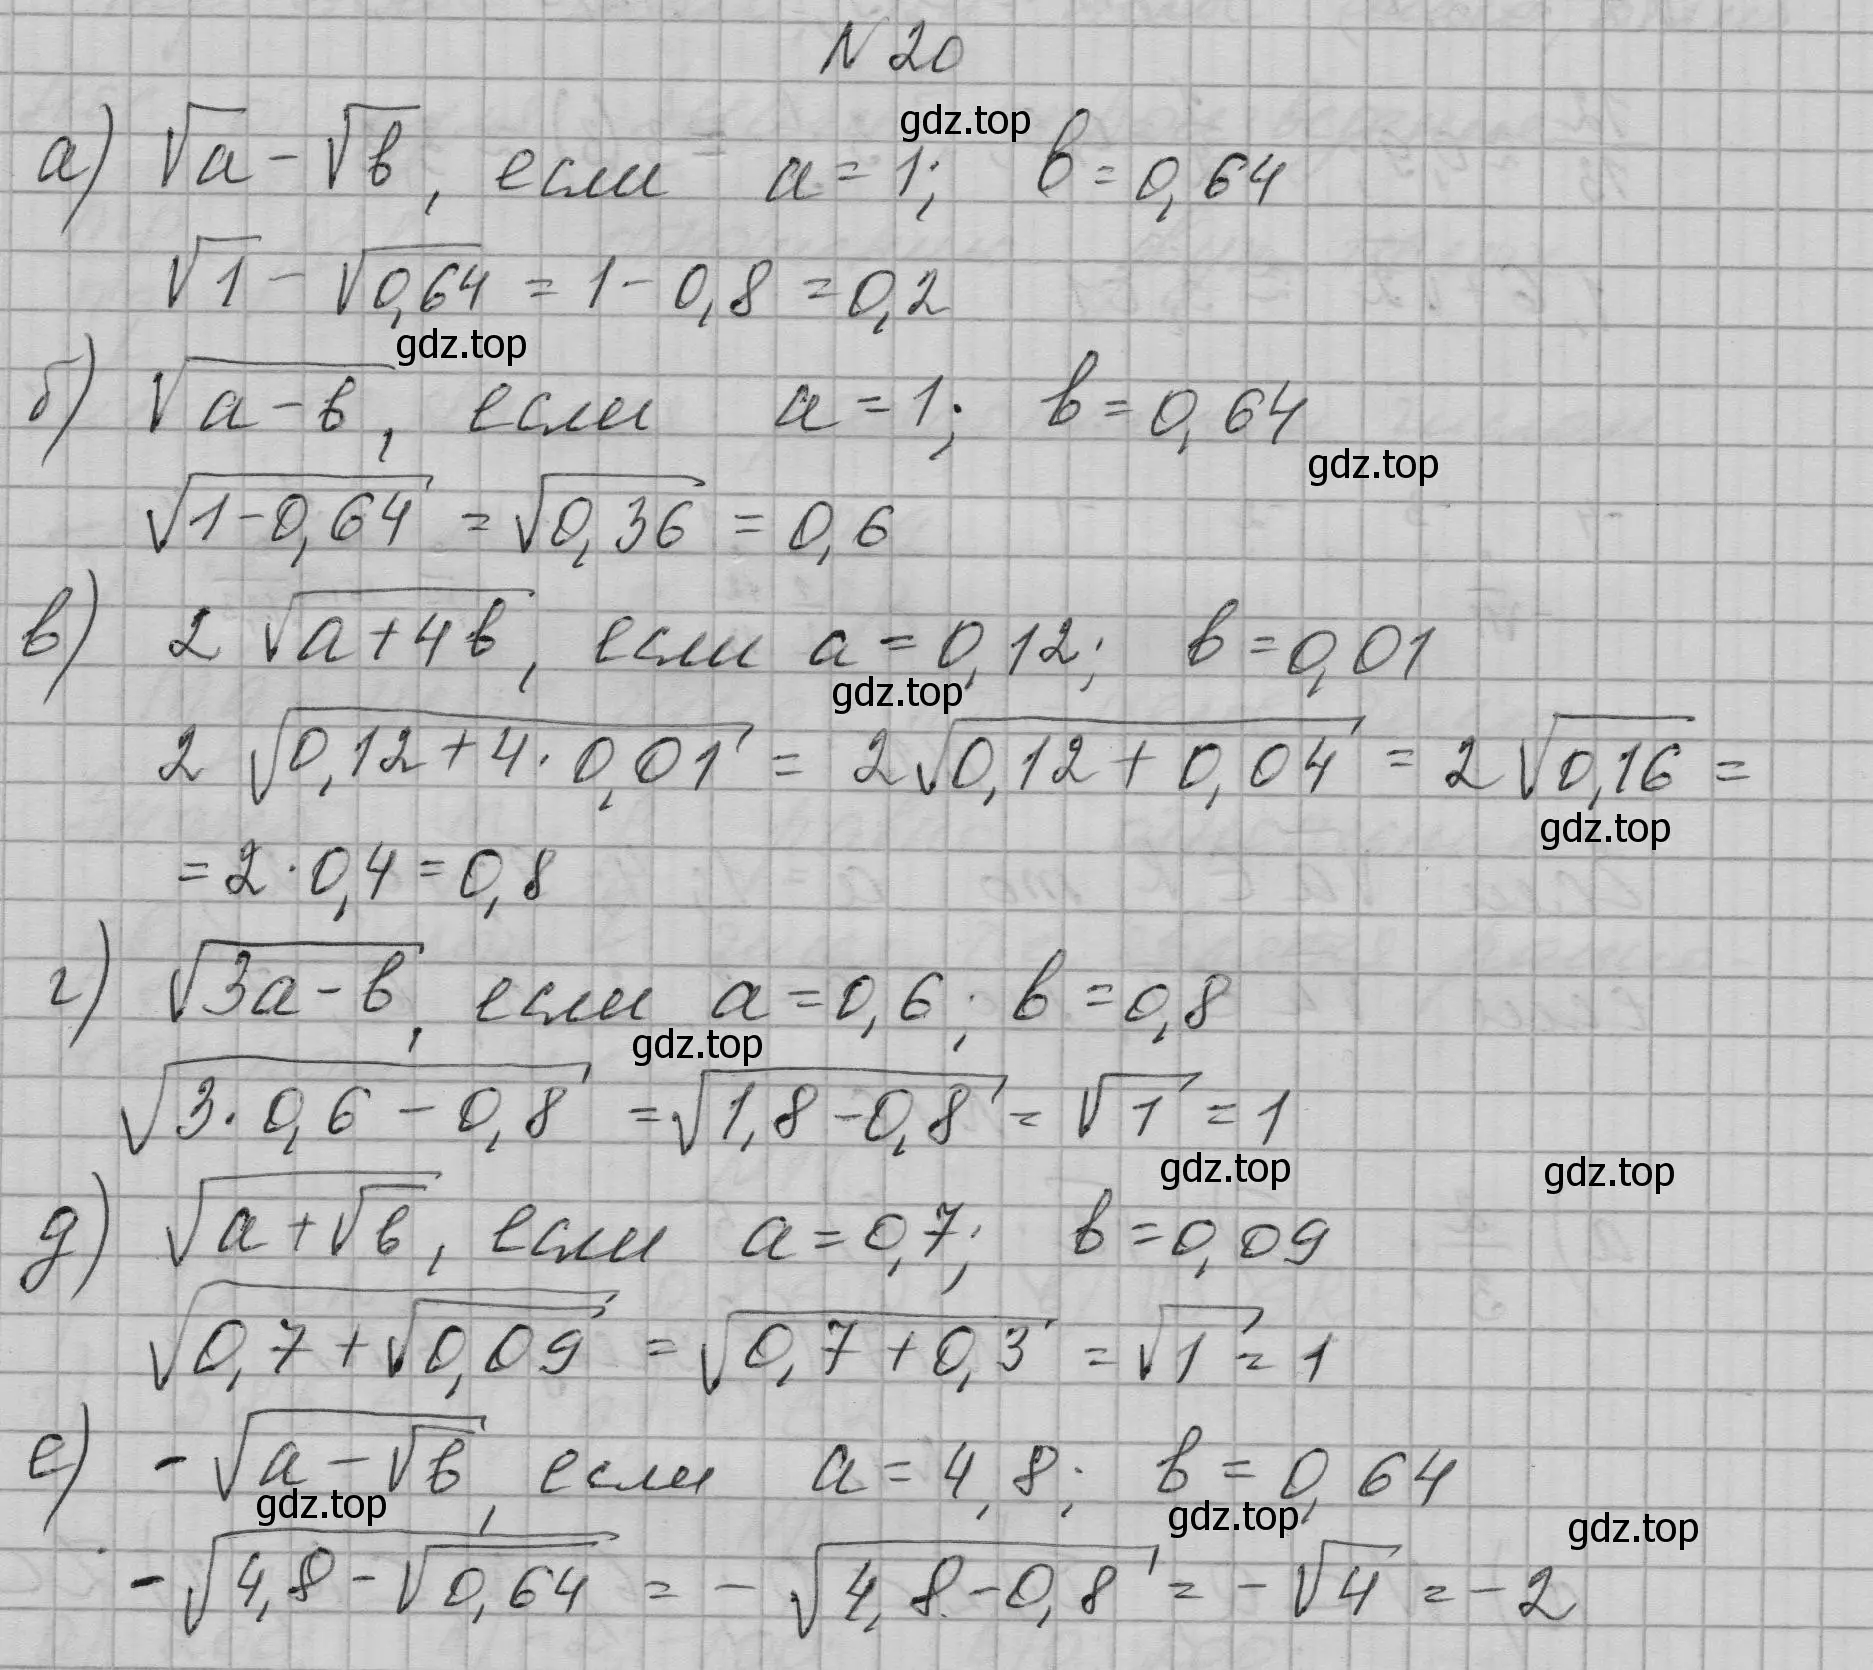 N 20
gdz.top
а) √a - √b, если a = 1; b = 0,64
√1 - √0,64 = 1 - 0,8 = 0,2
gdz.top
б) √(a - b), если a = 1; b = 0,64
gdz.top
√(1 - 0,64) = √0,36 = 0,6
в) 2 √(a + 4b), если a = 0,12; b = 0,01
gdz.top
2 √(0,12 + 4 · 0,01) = 2√(0,12 + 0,04) = 2√0,16 =
gdz.top
= 2 · 0,4 = 0,8
г) √(3a - b), если a = 0,6; b = 0,8
gdz.top
√(3 · 0,6 - 0,8) = √(1,8 - 0,8) = √1 = 1
gdz.top gdz.top
д) √(a + √b), если a = 0,7; b = 0,09
√(0,7 + √0,09) = √(0,7 + 0,3) = √1 = 1
е) - √(a - √b), если a = 4,8; b = 0,64
gdz.top gdz.top gdz.top
- √(4,8 - √0,64) = - √(4,8 - 0,8) = - √4 = - 2